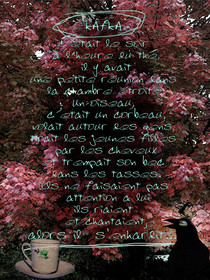 KAFKA
C'était le soir
à l'heure du thé
il y avait
une petite réunion dans
la chambre étroite
; un oiseau,
c'était un corbeau,
volait autour des gens,
tirait les jeunes filles
par les cheveux
trempait son bec
dans les tasses.
Ils ne faisaient pas
attention à lui
ils riaient
et chantaient,
alors il s'enhardit